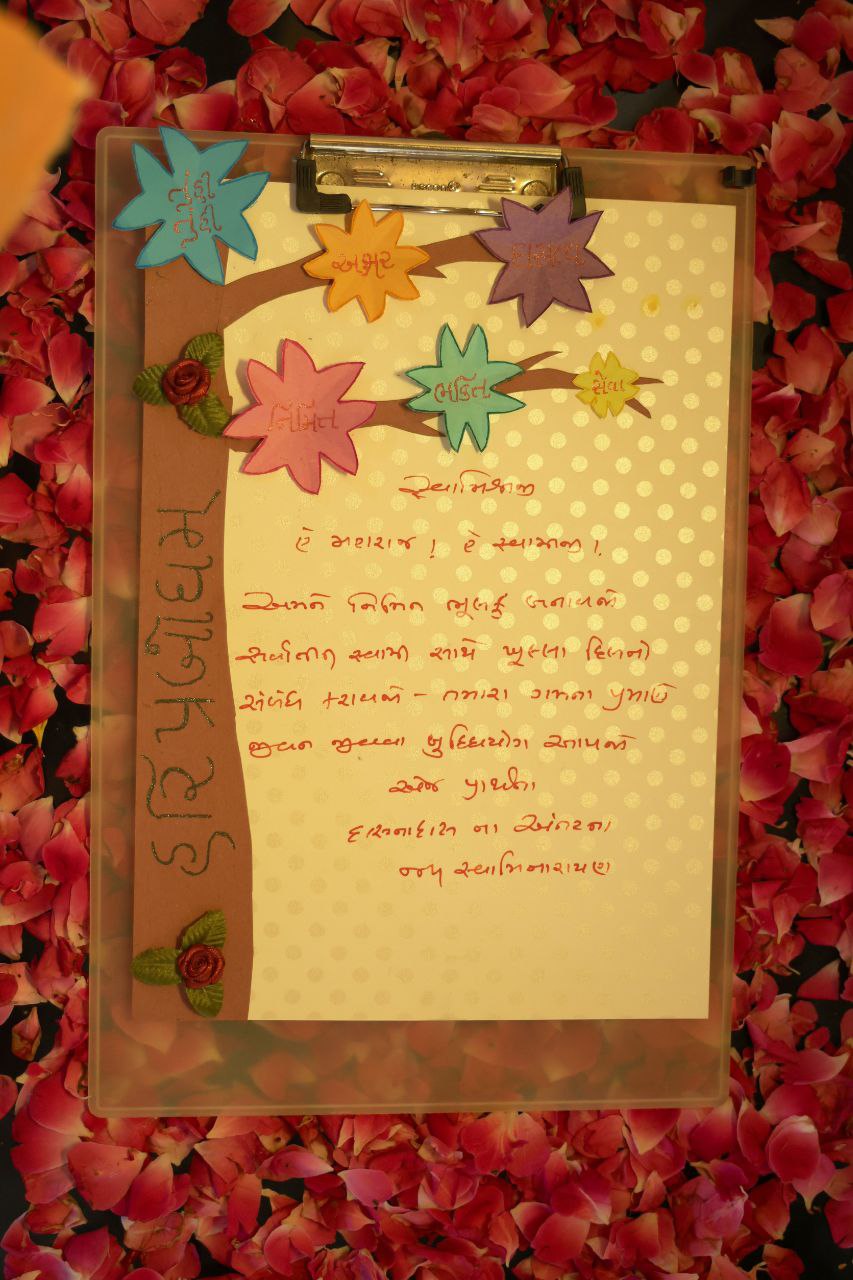 તુંહી
તુંહી
અક્ષર
દાસત્વ
નિમિત્ત
ભક્તિ
સેવા
હરિપ્રબોધમ્
સ્વામિશ્રીજી
હે મહારાજ ! હે સ્વામીજી !
અમને નિમિત્ત ભૂલકું બનાવજો
સર્વાતીત સ્વામી સાથે ખૂલ્લા દિલનો
સંબંધ કરાવજો - તમારા ગમતા પ્રમાણે
જીવન જીવવા બુદ્ધિયોગ આપજો
એજ પ્રાર્થના
દાસનાદાસ ના અંતરના
જય સ્વામિનારાયણ